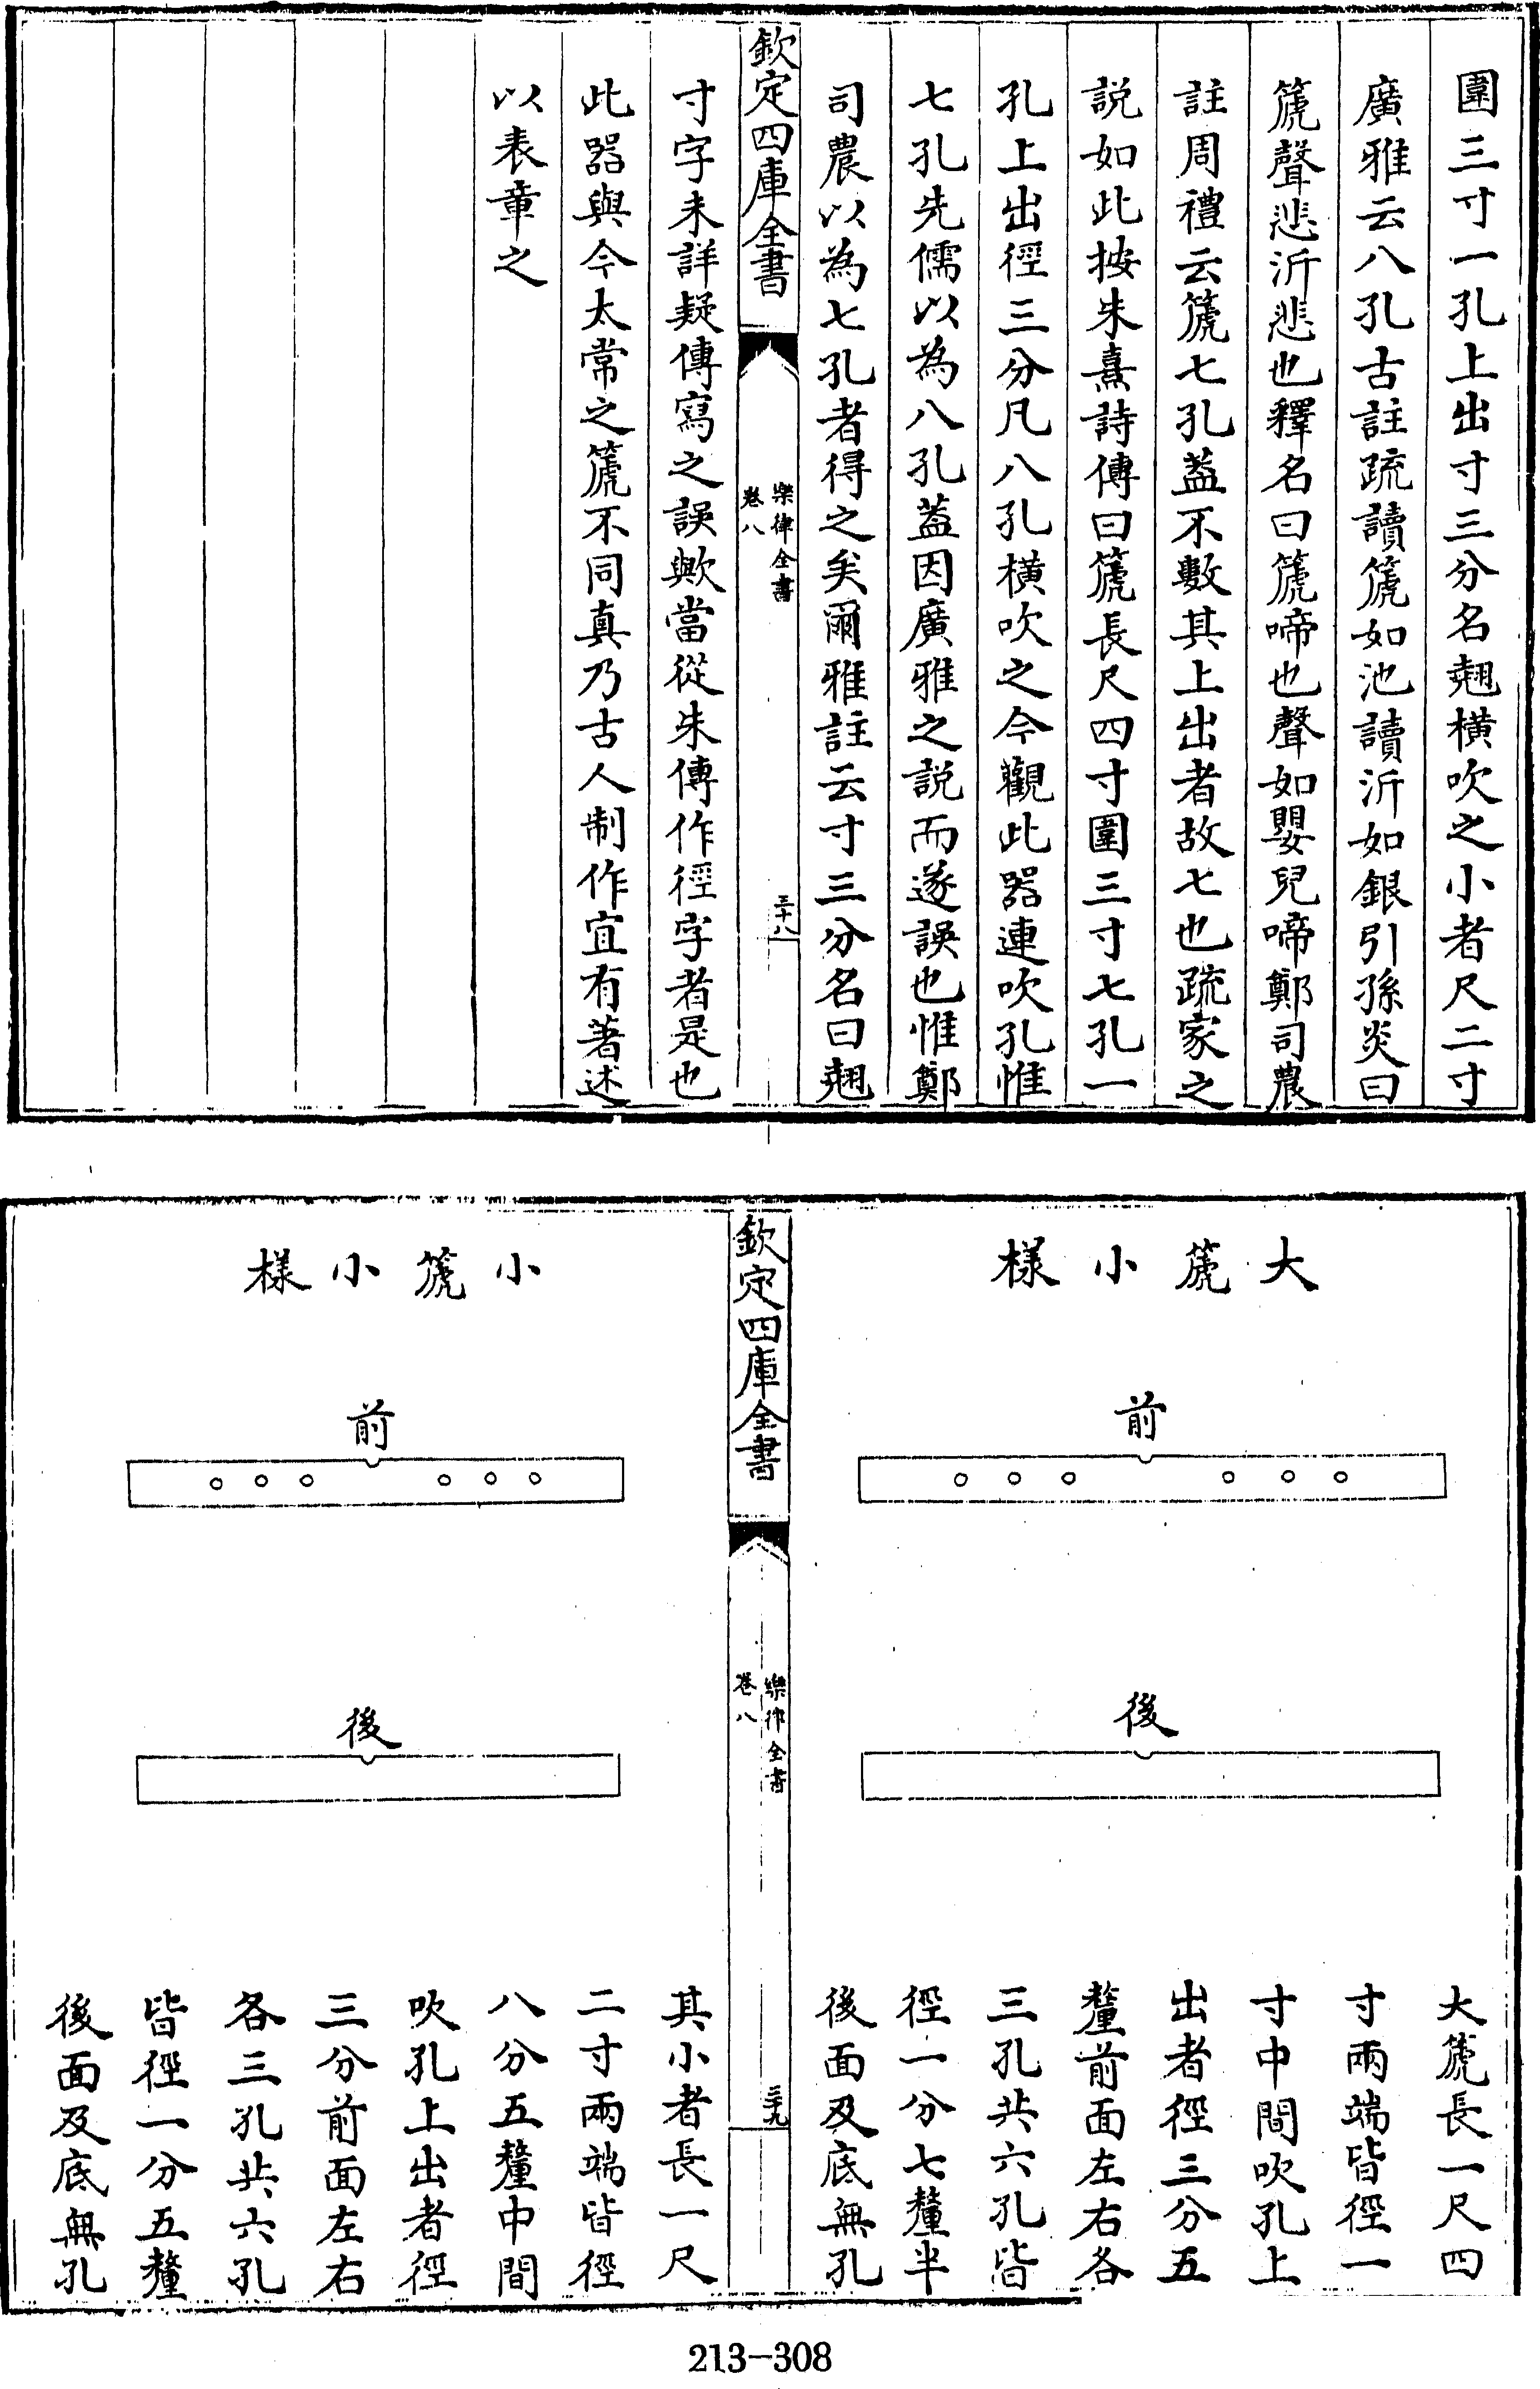 圍三寸一孔上出寸三分名翹橫吹之小者尺二寸
廣雅云八孔古註疏讀篪如池讀沂如銀引孫炎曰
篪聲悲沂悲也釋名曰篪啼也聲如嬰兒啼鄭司農
註周禮云篪七孔葢不數其上出者故七也疏家之
說如此按朱熹詩傳曰篪長尺四寸圍三寸七孔一
孔上出徑三分凡八孔橫吹之今觀此器連吹孔惟
七孔先儒以為八孔葢因廣雅之說而遂誤也惟鄭
司農以為七孔者得之矣爾雅註云寸三分名曰翹
欽定四庫全書
樂律全書
卷八
三十八
寸字未詳疑傳寫之誤歟當從朱傳作徑字者是也
此器與今太常之篪不同真乃古人制作宜有著述
以表章之
大篪小樣
前
後
大篪長一尺四
寸兩端皆徑一
寸中間吹孔上
出者徑三分五
釐前面左右各
三孔共六孔皆
徑一分七釐半
後面及底無孔
欽定四庫全書
樂律全書
卷八
三十九
小篪小樣
前
後
其小者長一尺
二寸兩端皆徑
八分五釐中間
吹孔上出者徑
三分前面左右
各三孔共六孔
皆徑一分五釐
後面及底無孔
213-308